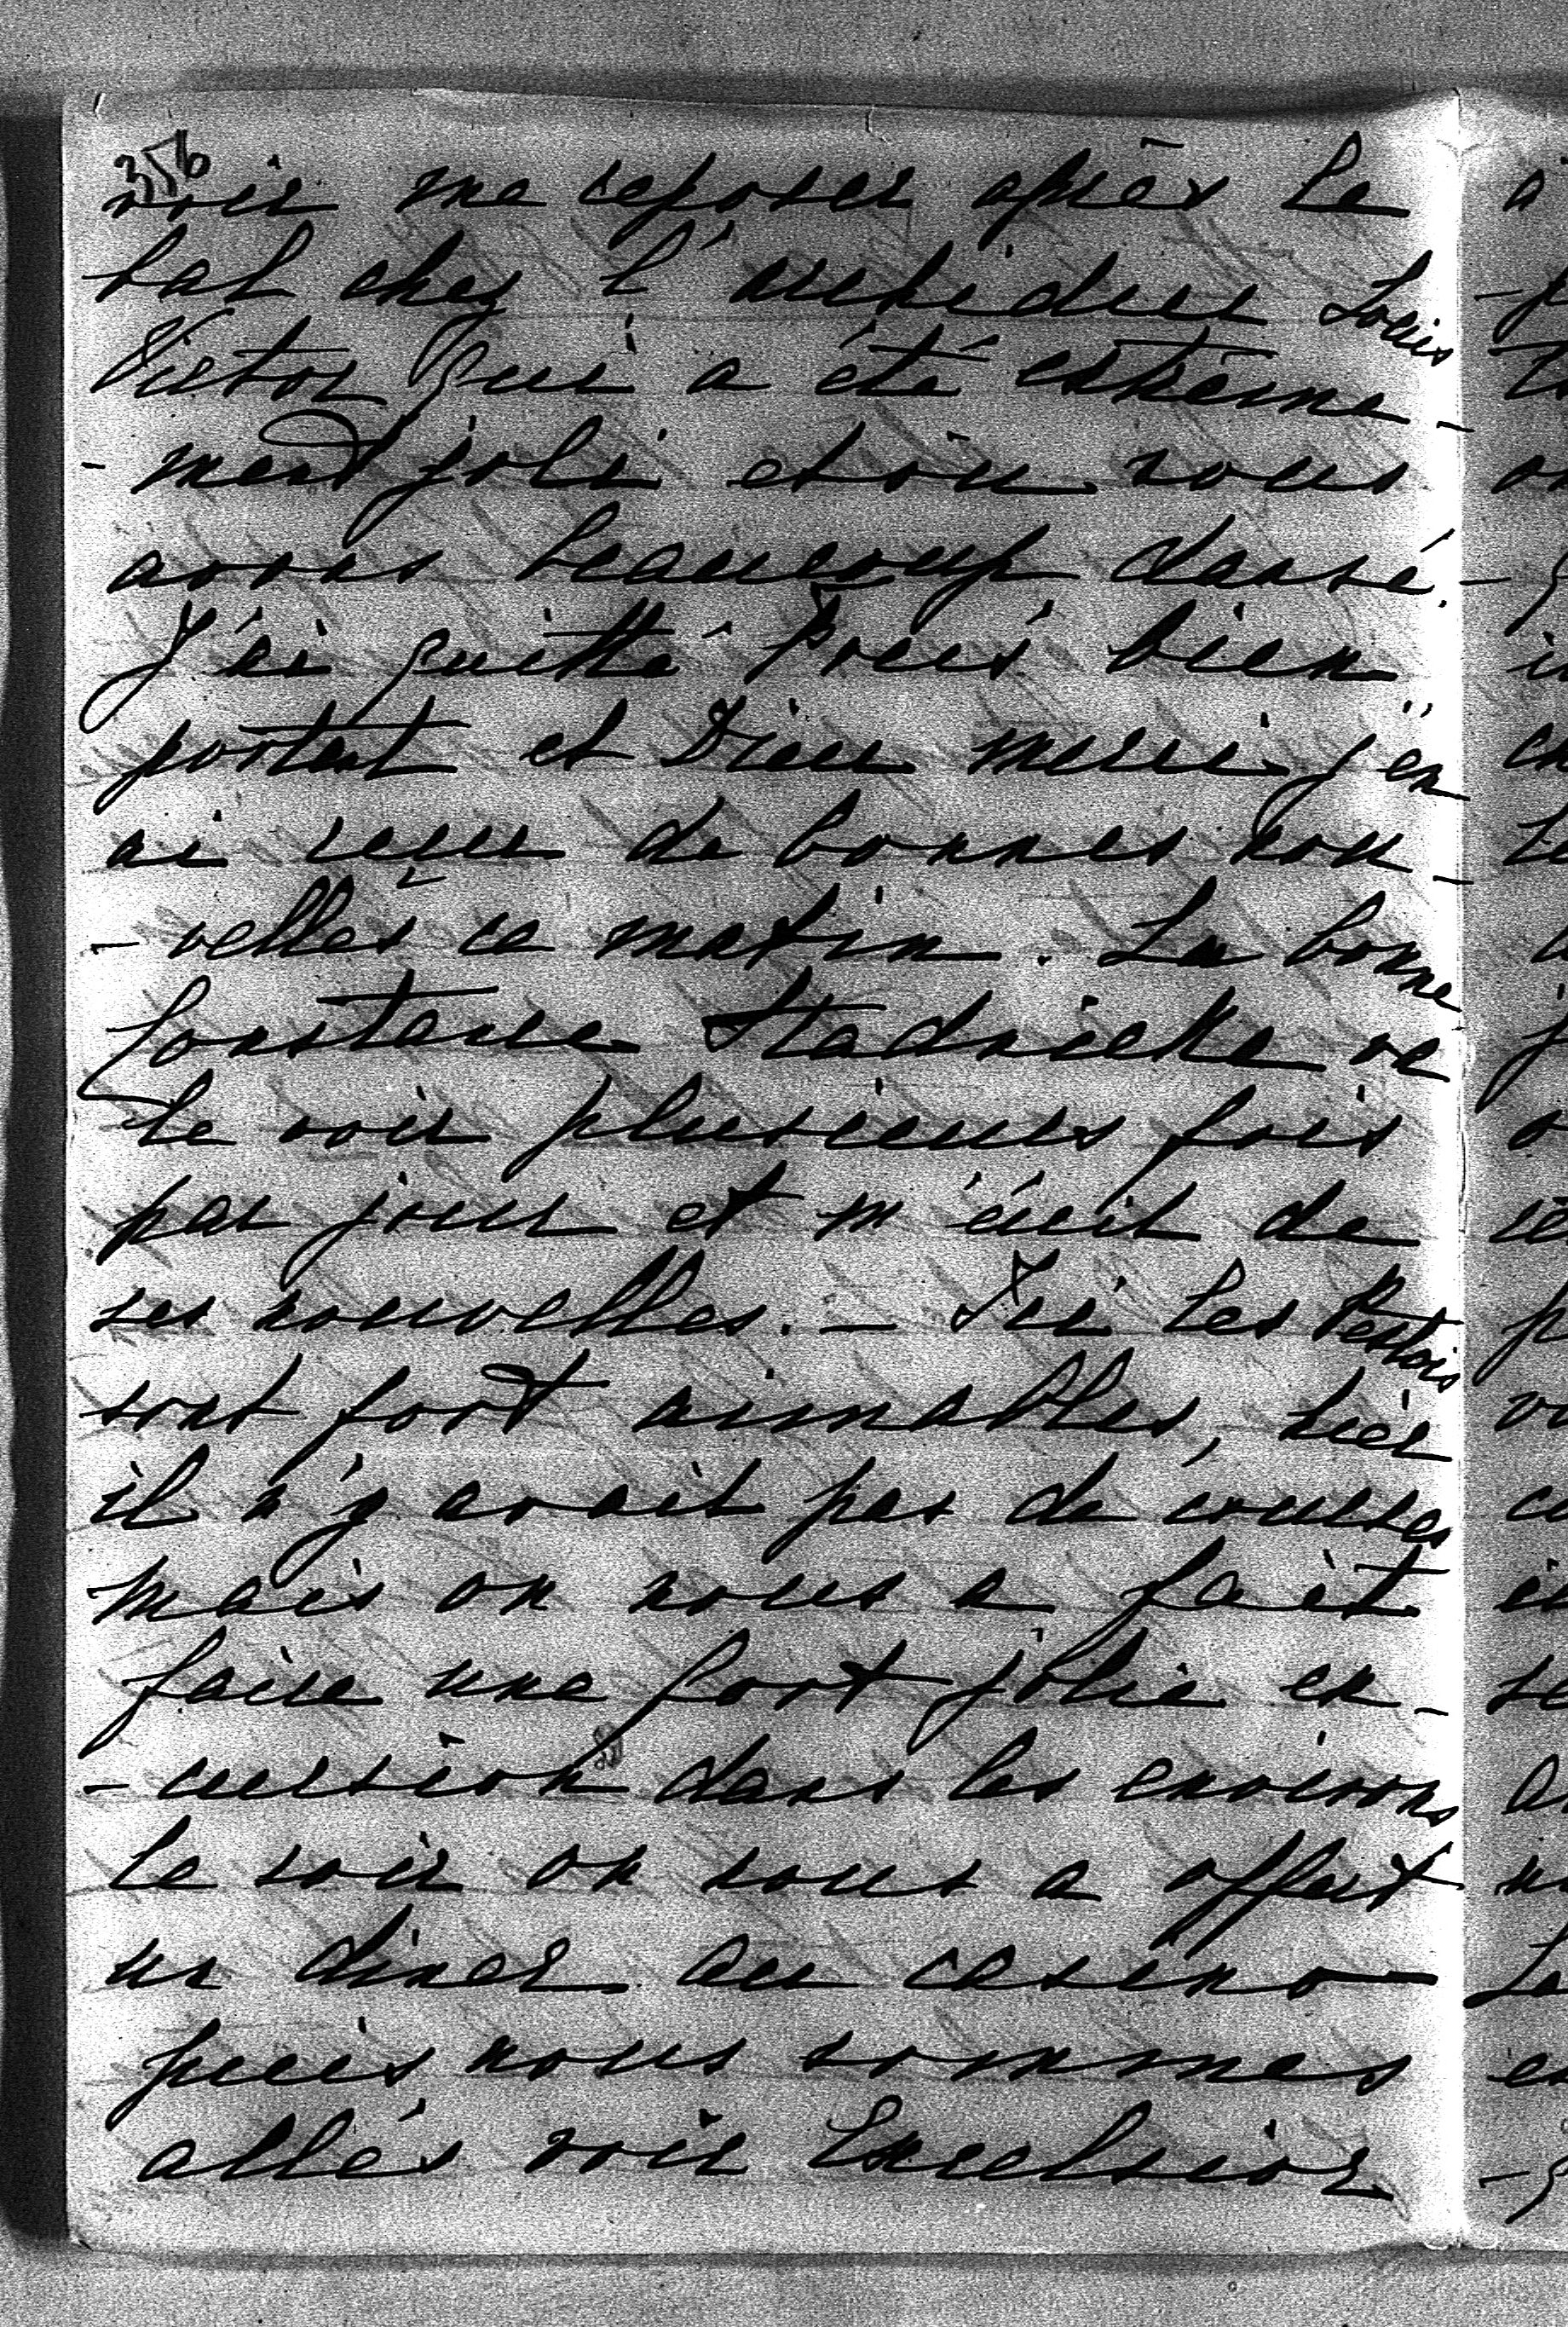 356
voir me reposer après le
bal chez l'archiduc Louis
Victor qui a été extrême-
-ment joli et où nous
avons beaucoup dansé.-
J'ai quitté bien
portant et Dieu merci j'en
ai reçu de bonnes nou-
-velles ce matin. La bonne
Constance Stadnicka va
le voir plusieurs fois
par jour et m'écrit de
ses nouvelles. - Ici les
sont fort aimables, hier
il n'y avait pas de courses
mais on nous a fait
faire une fort jolie ex-
-cursion dans les environs
le soir on nous a offert
un diner au casino
puis nous sommes
allés voir Excelsior